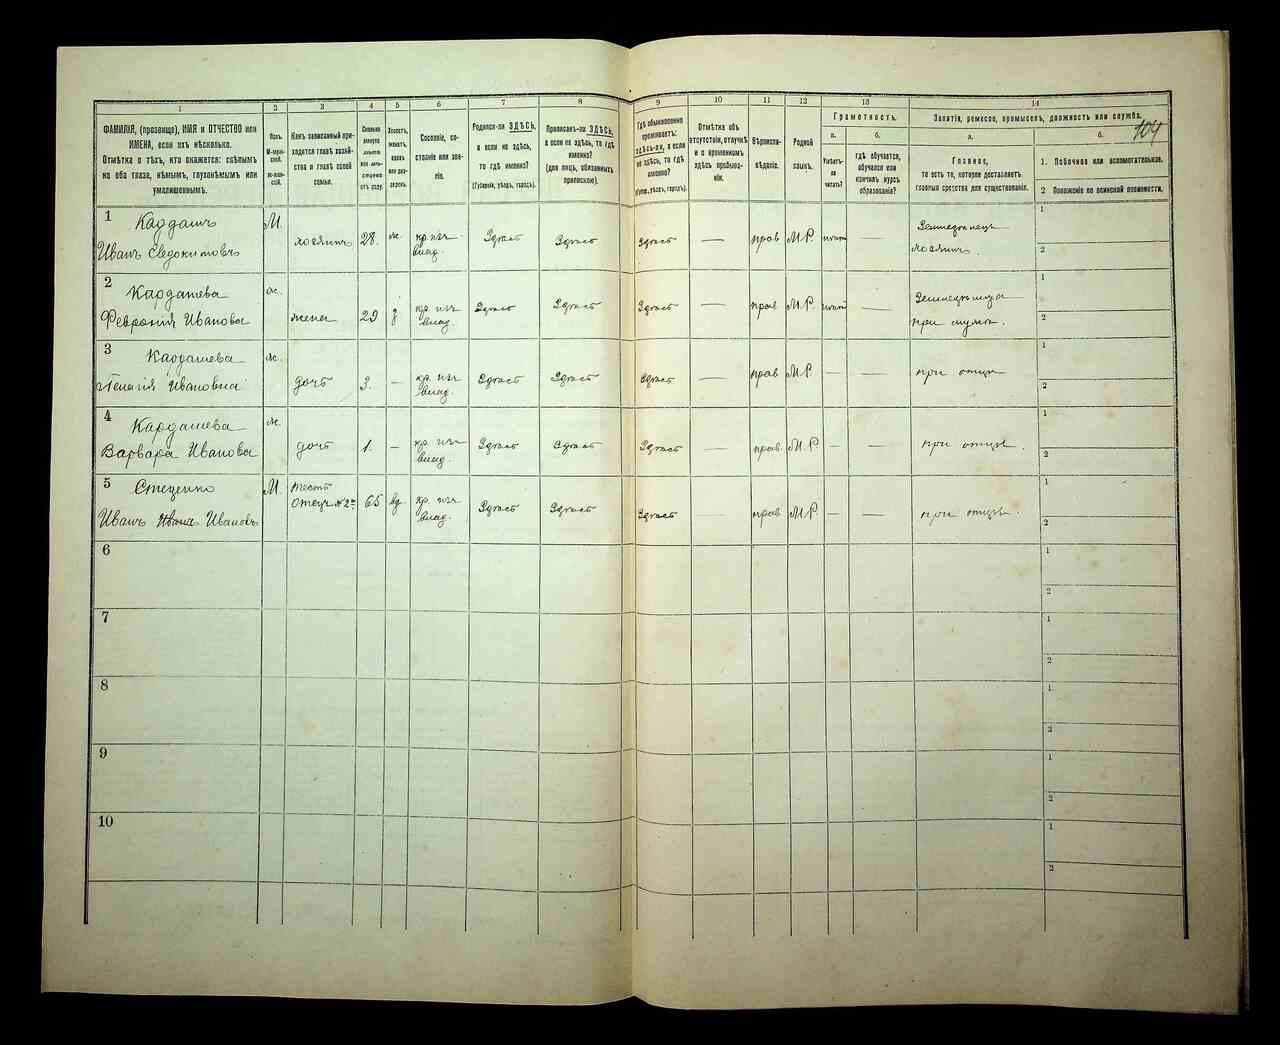 1
2
3
4
5
6
7
8
9
10
11
12
13
14
ФАМИЛІЯ, (прозвище), ИМЯ и ОТЧЕСТВО или
ИМЕНА, если ихъ нѣсколько.
Отмѣтка о тѣхъ, кто окажется: слѣпымъ
на оба глаза, нѣмымъ, глухонѣмымъ или
умалишеннымъ.
Полъ.
М-муж-
ской.
Ж-жен-
скій.
Какъ записанный при-
ходится главѣ хозяй-
ства и главѣ своей
семьи.
Сколько
минуло
лѣтъ
или мѣся-
цевъ
отъ роду.
Холостъ,
женатъ,
вдовъ
или раз-
веденъ.
Сословіе, со-
стояніе или зва-
ніе.
Родился-ли ЗДѢСЬ,
а если не здѣсь,
то гдѣ именно?
(Губернія, уѣздъ, городъ).
Приписанъ-ли ЗДѢСЬ,
а если не здѣсь, то гдѣ
именно?
(для лицъ, обязанныхъ
припискою).
Гдѣ обыкновенно
проживаетъ:
здѣсь-ли, а если
не здѣсь, то гдѣ
именно?
(Губер., уѣздъ, городъ).
Отмѣтка объ
отсутствіи, отлучкѣ
и о временномъ
здѣсь пребыва-
ніи.
Вѣроиспо-
вѣданіе.
Родной
языкъ.
Грамотность.
а.
Умѣетъ-
ли
читать?
б.
гдѣ обучается,
обучался или
кончилъ курсъ
образованія?
Занятіе, ремесло, промыселъ, должность или служба.
104
а.
Главное,
то есть то, которое доставляетъ
главныя средства для существованія.
б.
1. Побочное или вспомогательное.
2 Положеніе по воинской повинности.
1 Кардашъ
Иванъ Евдокимовъ
М.
хозяинъ
28.
ж.
кр. изъ
влад.
Здѣсь
Здѣсь
Здѣсь
—
прав
М.Р.
—
Земледѣлецъ
хозяинъ
1
2
2 Кардашева
Февронія Иванова
ж.
жена
29
з
кр. изъ
влад.
Здѣсь
Здѣсь
Здѣсь
—
прав
М.Р.
—
при мужѣ.
1
2
3 Кардашева
Пелагія Ивановна
ж.
дочь
3.
—
кр. изъ
влад.
Здѣсь
Здѣсь
Здѣсь
—
прав
М.Р.
—
—
при отцѣ
1
2
4 Кардашева
Варвара Иванова
ж.
дочь
1.
—
кр. изъ
влад.
Здѣсь
Здѣсь
Здѣсь
—
прав.
М.Р
—
—
при отцѣ
1
2
5 Стеценко
Иванъ Ивановъ
М.
тесть
отецъ №2го
65
вд
кр. изъ
влад.
Здѣсь
Здѣсь
Здѣсь
—
прав
М.Р
—
—
при отцѣ.
1
2
6
1
2
7
1
2
8
1
2
9
1
2
10
1
2